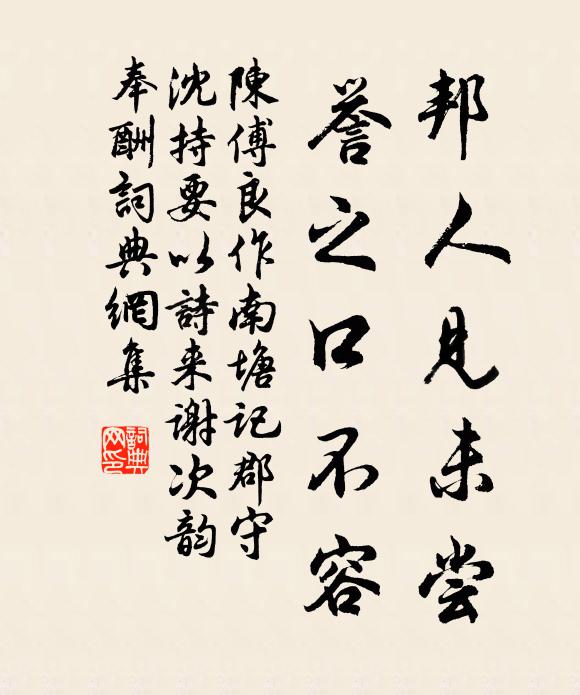 邦人見未尝
誉之口不容
陳傅良作南塘记郡守
沈持要以詩来謝次韵
奉酬詞典網集
詞典网印